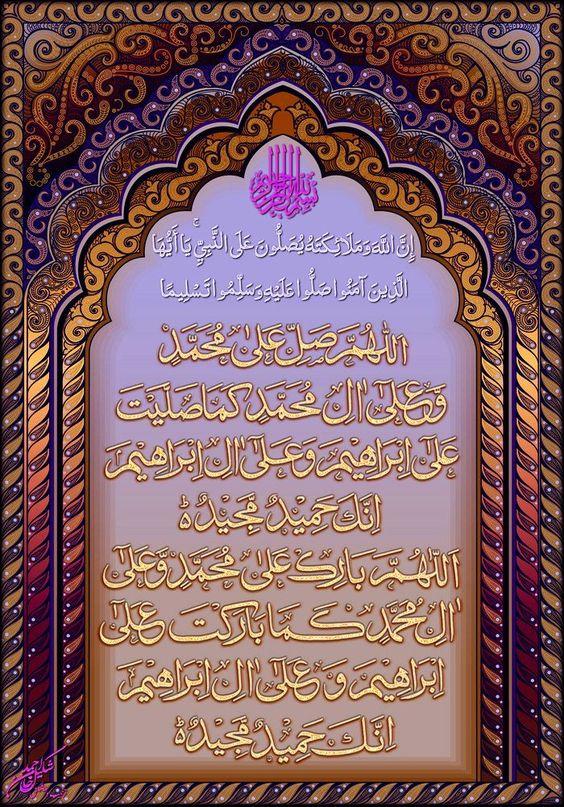 بسم الله الرحمن الرحيم
إِنَّ اللَّهَ وَمَلَائِكَتَهُ يُصَلُّونَ عَلَى النَّبِيِّ ۚ يَا أَيُّهَا
الَّذِينَ آمَنُوا صَلُّوا عَلَيْهِ وَسَلِّمُوا تَسْلِيمًا
اَللّٰهُمَّ صَلِّ عَلٰى مُحَمَّدٍ
وَّعَلٰٓى اٰلِ مُحَمَّدٍ كَمَا صَلَّيْتَ
عَلٰٓى اِبْرَاهِيْمَ وَعَلٰٓى اٰلِ اِبْرَاهِيْمَ
اِنَّكَ حَمِيْدٌ مَّجِيْدٌ ؕ
اَللّٰهُمَّ بَارِكْ عَلٰى مُحَمَّدٍ وَّعَلٰٓى
اٰلِ مُحَمَّدٍ كَمَا بَارَكْتَ عَلٰٓى
اِبْرَاهِيْمَ وَعَلٰٓى اٰلِ اِبْرَاهِيْمَ
اِنَّكَ حَمِيْدٌ مَّجِيْدٌ ؕ